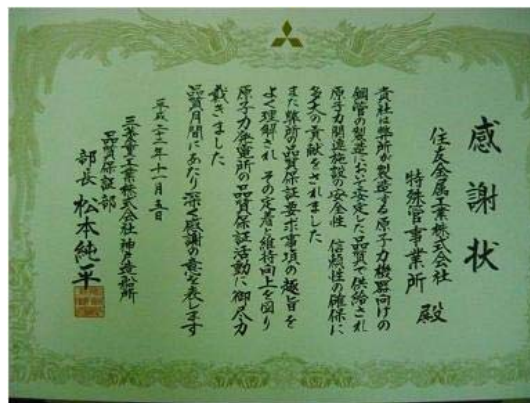 感謝状
住友金属工業株式会社
特殊管事業所 殿
貴社は弊所が製造する原子力機器向けの
鋼管の製造において安定した品質で供給され
原子力関連施設の安全性 信頼性の確保に
多大の貢献をされました
また弊所品質保証要求事項の趣旨を
よく理解され その定着と維持向上を図り
原子力発電所の品質保証活動に御尽力
戴きました
品質月間にあたり深く感謝の意を表します
平成二十二年十一月五日
三菱重工業株式会社 神戸造船所
品質保証部
部長 松本純一平